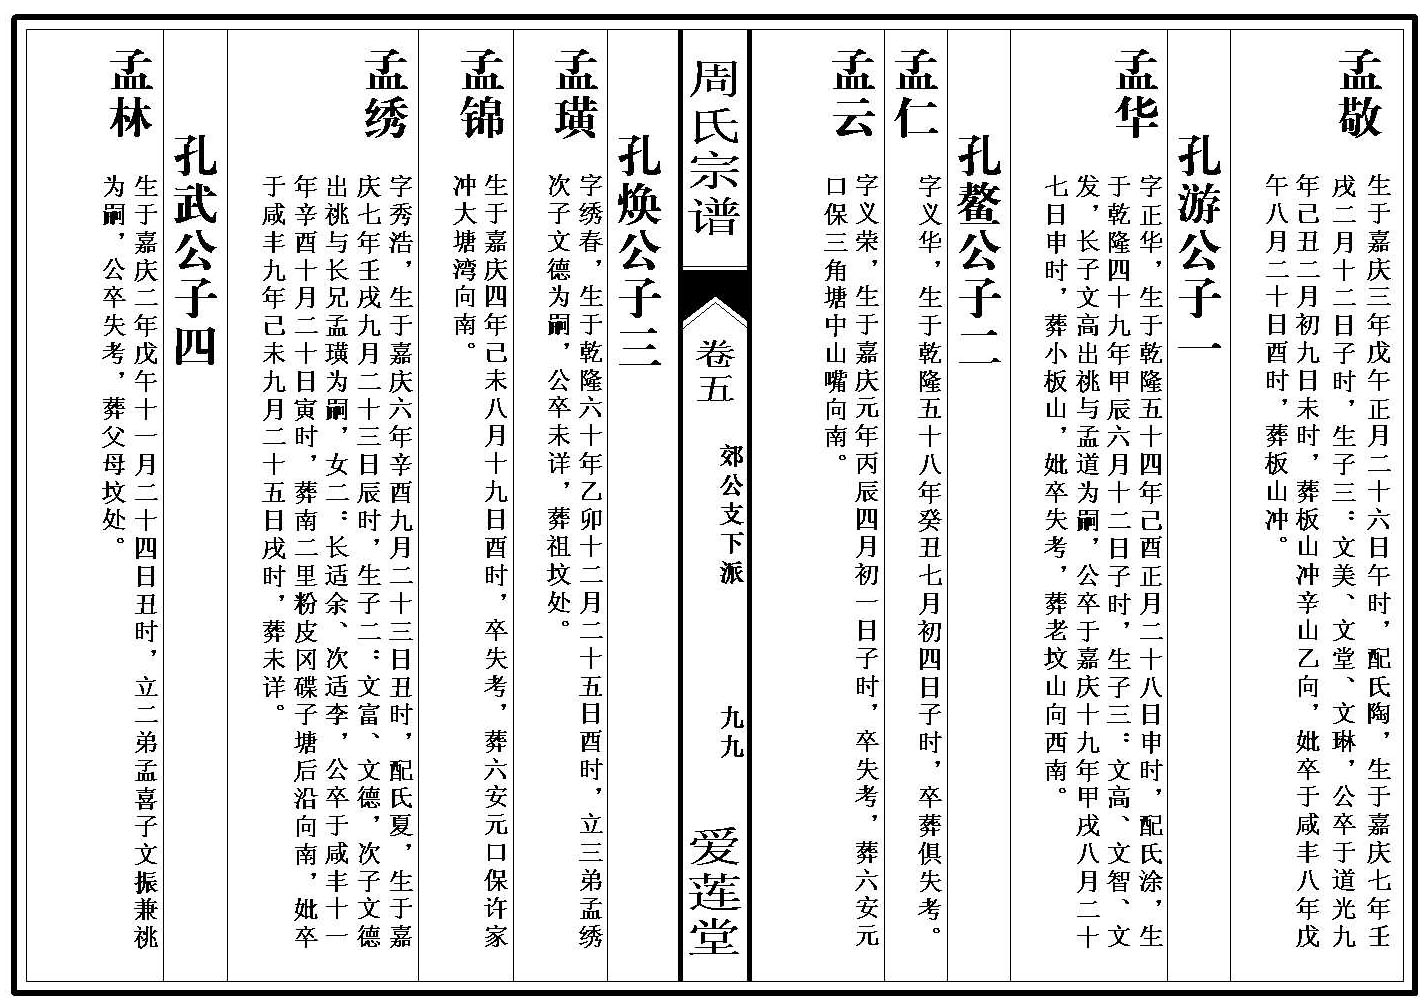 孟敬
生于嘉庆三年戊午正月二十六日午时，配氏陶，生于嘉庆七年壬
戌二月十二日子时，生子三：文美、文堂、文琳，公卒于道光九
年己丑二月初九日未时，葬板山冲辛山乙向，妣卒于咸丰八年戊
午八月二十日酉时，葬板山冲。
孔游公子一
孟华
字正华，生于乾隆五十四年己酉正月二十八日申时，配氏涂，生
于乾隆四十九年甲辰六月十二日子时，生子三：文高、文智、文
发，长子文高出祧与孟道为嗣，公卒于嘉庆十九年甲戌八月二十
七日申时，葬小板山，妣卒失考，葬老坟山向西南。
孔鳌公子二
孟仁
字义华，生于乾隆五十八年癸丑七月初四日子时，卒葬俱失考。
孟云
字义荣，生于嘉庆元年丙辰四月初一日子时，卒失考，葬六安元
口保三角塘中山嘴向南。
周氏宗谱
卷五
郊公支下派
九九
爱莲堂
孔焕公子三
孟璜
字绣春，生于乾隆六十年乙卯十二月二十五日酉时，立三弟孟绣
次子文德为嗣，公卒未详，葬祖坟处。
孟锦
生于嘉庆四年己未八月十九日酉时，卒失考，葬六安元口保许家
冲大塘湾向南。
孟绣
字秀浩，生于嘉庆六年辛酉九月二十三日丑时，配氏夏，生于嘉
庆七年壬戌九月二十三日辰时，生子二：文富、文德，次子文德
出祧与长兄孟璜为嗣，女二：长适余、次适李，公卒于咸丰十一
年辛酉十月二十日寅时，葬南二里粉皮冈碟子塘后沿向南，妣卒
于咸丰九年己未九月二十五日戌时，葬未详。
孔武公子四
孟林
生于嘉庆二年戊午十一月二十四日丑时，立二弟孟喜子文振兼祧
为嗣，公卒失考，葬父母坟处。